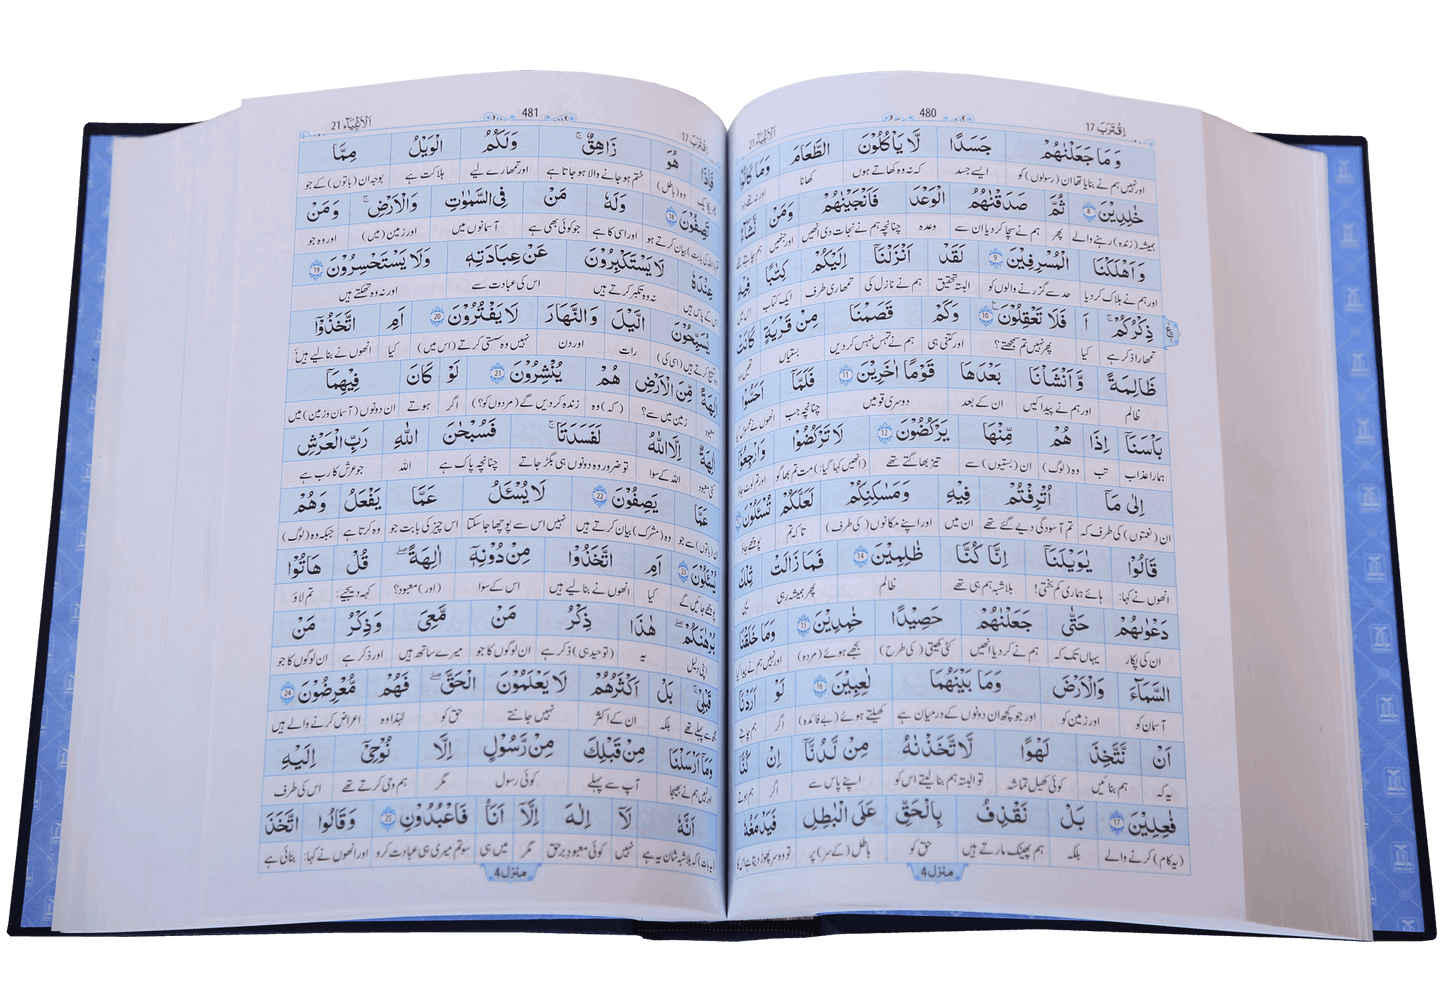 اقترب 17
480
الانبیآء 21
وَمَا جَعَلْنٰهُمْ جَسَدًا لَّا يَاْكُلُوْنَ الطَّعَامَ وَمَا كَانُوْا
اور نہیں ہم نے بنایا تھا ان (رسولوں) کو ایسے جسد کہ نہ وہ کھاتے ہوں کھانا
خٰلِدِيْنَ 8 ثُمَّ صَدَقْنٰهُمُ الْوَعْدَ فَاَنْجَيْنٰهُمْ وَمَنْ نَّشَآءُ
ہمیشہ (زندہ) رہنے والے پھر ہم نے سچا کر دیا ان سے وعدہ چنانچہ ہم نے نجات دی انھیں اور جنھیں ہم چاہتے تھے
وَاَهْلَكْنَا الْمُسْرِفِيْنَ 9 لَقَدْ اَنْزَلْنَآ اِلَيْكُمْ كِتٰبًا فِيْهِ
اور ہم نے ہلاک کر دیا حد سے گزرنے والوں کو البتہ تحقیق ہم نے نازل کی تمھاری طرف ایک کتاب
ذِكْرُكُمْ اَ فَلَا تَعْقِلُوْنَ 10 وَكَمْ قَصَمْنَا مِنْ قَرْيَةٍ كَانَتْ
تمھارا ذکر ہے کیا پھر نہیں تم سمجھتے؟ اور کتنی ہی ہم نے تہس نہس کر دیں بستیاں
ظَالِمَةً وَّاَنْشَاْنَا بَعْدَهَا قَوْمًا اٰخَرِيْنَ 11 فَلَمَّآ اَحَسُّوْا
ظالم اور ہم نے پیدا کیں ان کے بعد دوسری قومیں چنانچہ جب
بَاْسَنَآ اِذَا هُمْ مِّنْهَا يَرْكُضُوْنَ 12 لَا تَرْكُضُوْا وَارْجِعُوْٓا
ہمارا عذاب تب وہ (لوگ) ان (بستیوں) سے تیز بھاگتے تھے (انھیں کہا گیا:) مت تم بھاگو
اِلٰى مَآ اُتْرِفْتُمْ فِيْهِ وَمَسٰكِنِكُمْ لَعَلَّكُمْ تُسْئَلُوْنَ
ان (نعمتوں) کی طرف کہ تم آسودگی دیے گئے تھے ان میں اور اپنے مکانوں (کی طرف) تاکہ تم
قَالُوْا يٰوَيْلَنَآ اِنَّا كُنَّا ظٰلِمِيْنَ 14 فَمَا زَالَتْ تِّلْكَ
انھوں نے کہا: ہائے ہماری کم بختی! بلاشبہ ہم ہی تھے ظالم پھر ہمیشہ رہی
دَعْوٰىهُمْ حَتّٰى جَعَلْنٰهُمْ حَصِيْدًا خٰمِدِيْنَ 15 وَمَا خَلَقْنَا
ان کی پکار یہاں تک کہ ہم نے کر دیا انھیں کٹی کھیتی (کی طرح) بجھے ہوئے (مردہ)
السَّمَآءَ وَالْاَرْضَ وَمَا بَيْنَهُمَا لٰعِبِيْنَ 16 لَوْ اَرَدْنَآ
آسمان کو اور زمین کو اور جو کچھ ان دونوں کے درمیان ہے کھیلتے ہوئے (بے فائدہ) اگر ہم چاہتے
اَنْ نَّتَّخِذَ لَهْوًا لَّاتَّخَذْنٰهُ مِنْ لَّدُنَّآ اِنْ كُنَّا
یہ کہ ہم بنائیں کوئی کھیل تماشہ تو البتہ ہم بنا لیتے اس کو اپنے پاس سے اگر ہم ہوتے
فٰعِلِيْنَ 17 بَلْ نَقْذِفُ بِالْحَقِّ عَلَى الْبَاطِلِ فَيَدْمَغُهٗ
(یہ کام) کرنے والے بلکہ ہم پھینک مارتے ہیں حق کو باطل (کے سر) پر
منزل 4
اقترب 17
481
الانبیآء 21
فَاِذَا هُوَ زَاهِقٌ وَلَكُمُ الْوَيْلُ مِمَّا
وہ (باطل) ختم ہو جانے والا ہو جاتا ہے اور تمھارے لیے ہلاکت ہے بوجہ ان (باتوں) کے جو
تَصِفُوْنَ 18 وَلَهٗ مَنْ فِي السَّمٰوٰتِ وَالْاَرْضِ وَمَنْ
اور اسی کا ہے جو کوئی بھی ہے آسمانوں میں اور زمین (میں) اور وہ جو
عِنْدَهٗ لَا يَسْتَكْبِرُوْنَ عَنْ عِبَادَتِهٖ وَلَا يَسْتَحْسِرُوْنَ 19
نہ وہ تکبر کرتے ہیں اس کی عبادت سے اور نہ وہ تھکتے ہیں
يُسَبِّحُوْنَ الَّيْلَ وَالنَّهَارَ لَا يَفْتُرُوْنَ 20 اَمِ اتَّخَذُوْٓا
رات اور دن نہیں وہ سستی کرتے (اس میں) کیا انھوں نے بنا لیے ہیں
اٰلِهَةً مِّنَ الْاَرْضِ هُمْ يُنْشِرُوْنَ 21 لَوْ كَانَ فِيْهِمَآ
معبود زمین میں سے؟ (کہ) وہ زندہ کر دیں گے (مردوں کو؟) اگر ہوتے ان دونوں (آسمان و زمین) میں
اٰلِهَةٌ اِلَّا اللّٰهُ لَفَسَدَتَا فَسُبْحٰنَ اللّٰهِ رَبِّ الْعَرْشِ
کئی معبود اللہ کے سوا تو ضرور وہ دونوں ہی بگڑ جاتے چنانچہ پاک ہے اللہ جو عرش کا رب ہے
عَمَّا يَصِفُوْنَ 22 لَا يُسْئَلُ عَمَّا يَفْعَلُ وَهُمْ
ان (باتوں) سے جو وہ (مشرک) بیان کرتے ہیں نہیں اس سے پوچھا جا سکتا اس چیز کی بابت جو وہ کرتا ہے جبکہ وہ (لوگ)
يُسْئَلُوْنَ 23 اَمِ اتَّخَذُوْا مِنْ دُوْنِهٖٓ اٰلِهَةً قُلْ هَاتُوْا
پوچھے جائیں گے کیا انھوں نے بنا لیے ہیں اس کے سوا (اور) معبود؟ کہہ دیجیے: تم لاؤ
بُرْهَانَكُمْ هٰذَا ذِكْرُ مَنْ مَّعِيَ وَذِكْرُ مَنْ
اپنی دلیل یہ (توحید ہی) ذکر ہے ان لوگوں کا جو میرے ساتھ ہیں اور ذکر ہے ان لوگوں کا جو
قَبْلِيْ بَلْ اَكْثَرُهُمْ لَا يَعْلَمُوْنَ الْحَقَّ فَهُمْ مُّعْرِضُوْنَ 24
مجھ سے پہلے تھے بلکہ ان کے اکثر نہیں جانتے حق کو لہٰذا وہ اعراض کرنے والے ہیں
وَمَآ اَرْسَلْنَا مِنْ قَبْلِكَ مِنْ رَّسُوْلٍ اِلَّا نُوْحِيْٓ اِلَيْهِ
اور نہیں ہم نے بھیجا آپ سے پہلے کوئی رسول مگر ہم وحی کرتے تھے اس کی طرف
اَنَّهٗ لَآ اِلٰهَ اِلَّآ اَنَا فَاعْبُدُوْنِ 25 وَقَالُوا اتَّخَذَ
کہ بلاشبہ شان یہ ہے نہیں کوئی معبود برحق مگر میں ہی سو تم میری ہی عبادت کرو اور انھوں نے کہا: بنائی ہے
منزل 4